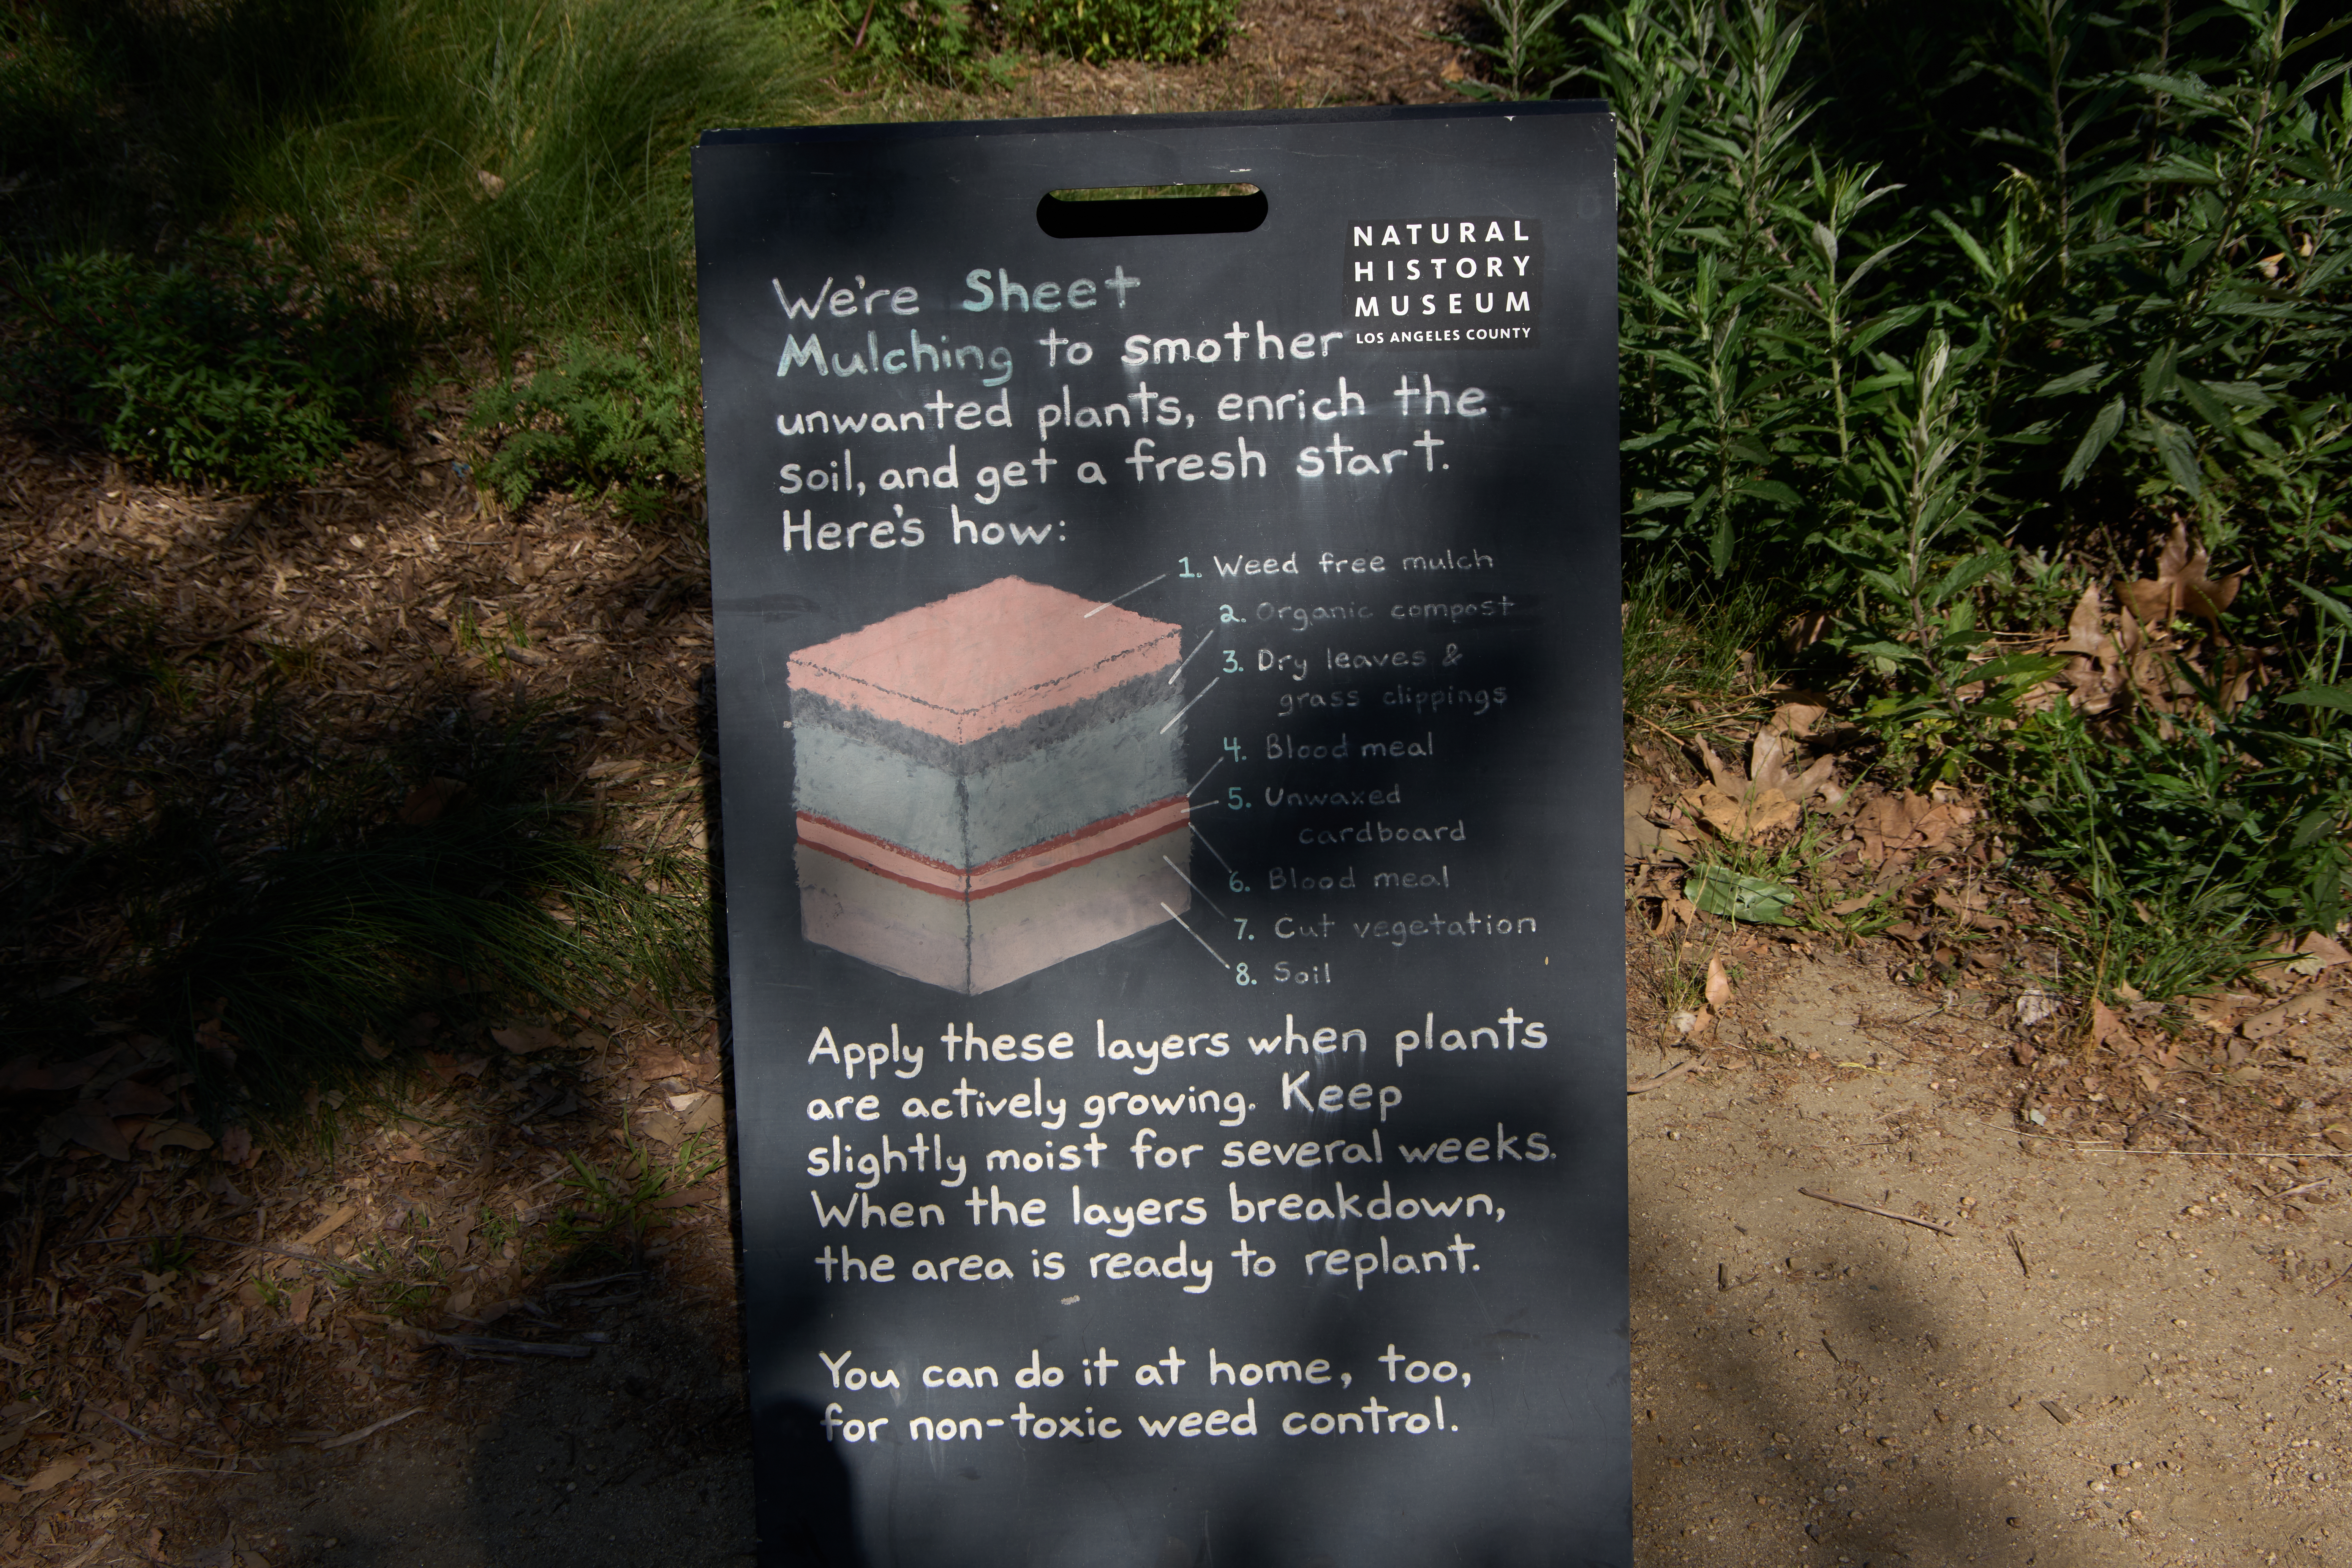 NATURAL
HISTORY
MUSEUM
LOS ANGELES COUNTY
We're Sheet
Mulching to smother
unwanted plants, enrich the
soil, and get a fresh start.
Here's how:
1. Weed free mulch
2. Organic compost
3. Dry leaves &
grass clippings
4. Blood meal
5. Unwaxed
cardboard
6. Blood meal
7. Cut vegetation
8. Soil
Apply these layers when plants
are actively growing. Keep
slightly moist for several weeks.
When the layers breakdown,
the area is ready to replant.
You can do it at home, too,
for non-toxic weed control.